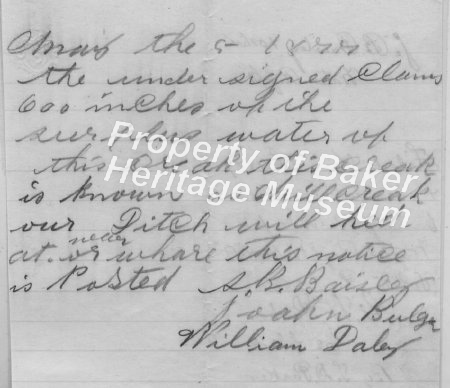 May the 5 18
the under signed Claims
600 inches of the
surplus water of
this Creak this Creak
is known
our Ditch will
at near or whare this notice
is Posted S B. Baisley
Joahn Bulger
William Daley
Property of Baker
Heritage Museum